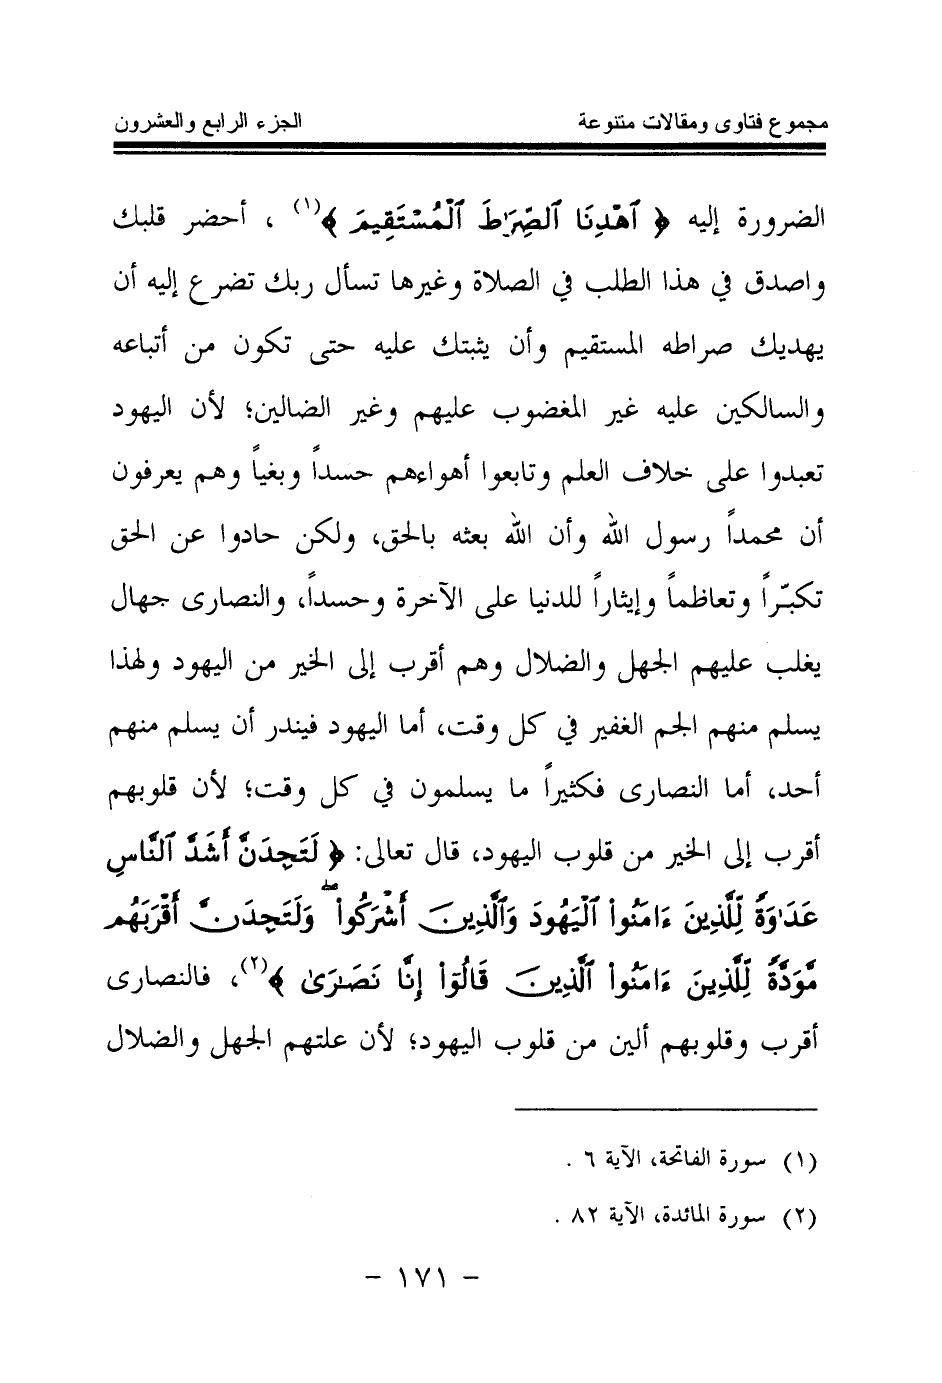 مجموع فتاوى ومقالات متنوعة الجزء الرابع والعشرون
الضرورة إليه ﴿ ٱهْدِنَا ٱلصِّرَٰطَ ٱلْمُسْتَقِيمَ ﴾(١) ، أحضر قلبك
واصدق في هذا الطلب في الصلاة وغيرها تسأل ربك تضرع إليه أن
يهديك صراطه المستقيم وأن يثبتك عليه حتى تكون من أتباعه
والسالكين عليه غير المغضوب عليهم وغير الضالين؛ لأن اليهود
تعبدوا على خلاف العلم وتابعوا أهواءهم حسداً وبغياً وهم يعرفون
أن محمداً رسول الله وأن الله بعثه بالحق، ولكن حادوا عن الحق
تكبّراً وتعاظماً وإيثاراً للدنيا على الآخرة وحسداً، والنصارى جهال
يغلب عليهم الجهل والضلال وهم أقرب إلى الخير من اليهود ولهذا
يسلم منهم الجم الغفير في كل وقت، أما اليهود فيندر أن يسلم منهم
أحد، أما النصارى فكثيراً ما يسلمون في كل وقت؛ لأن قلوبهم
أقرب إلى الخير من قلوب اليهود، قال تعالى: ﴿ لَتَجِدَنَّ أَشَدَّ ٱلنَّاسِ
عَدَٰوَةً لِّلَّذِينَ ءَامَنُوا۟ ٱلْيَهُودَ وَٱلَّذِينَ أَشْرَكُوا۟ ۖ وَلَتَجِدَنَّ أَقْرَبَهُم
مَّوَدَّةً لِّلَّذِينَ ءَامَنُوا۟ ٱلَّذِينَ قَالُوٓا۟ إِنَّا نَصَٰرَىٰ ﴾(٢)، فالنصارى
أقرب وقلوبهم ألين من قلوب اليهود؛ لأن علتهم الجهل والضلال
(١) سورة الفاتحة، الآية ٦ .
(٢) سورة المائدة، الآية ٨٢ .
- ١٧١ -